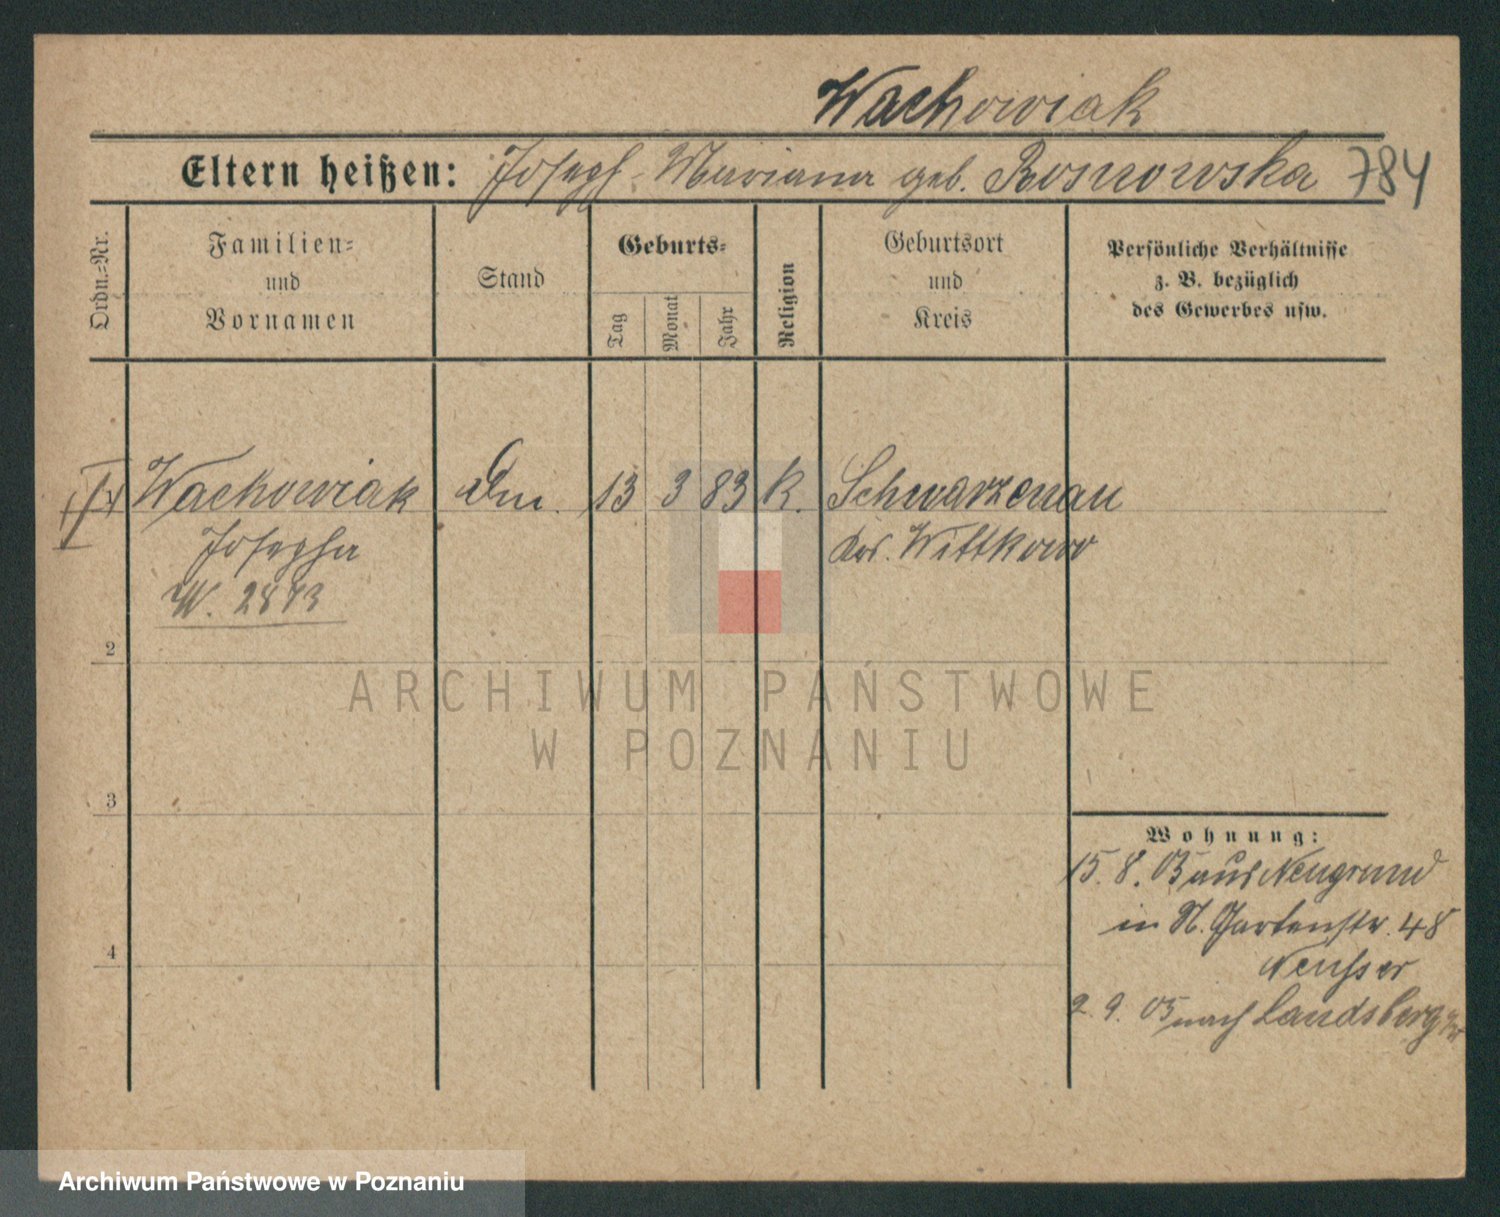 Wachowiak
Eltern heißen: Joseph - Mariana geb. Rosnowska 784
Ordn.-Nr.
Familien-
und
Vornamen
Stand
Geburts-
Tag
Monat
Jahr
Religion
Geburtsort
und
Kreis
Persönliche Verhältnisse
z. B. bezüglich
des Gewerbes usw.
Wachowiak 13 3 83 K. Schwarzenau
Josepha Krs. Wittkowo
W. 2893
2
3
4
Wohnung:
15. 8. 05 aus Neugrund
in St. Gartenstr. 48
2. 9. 05 nach Landsberg
ARCHIWUM PAŃSTWOWE
W POZNANIU
Archiwum Państwowe w Poznaniu